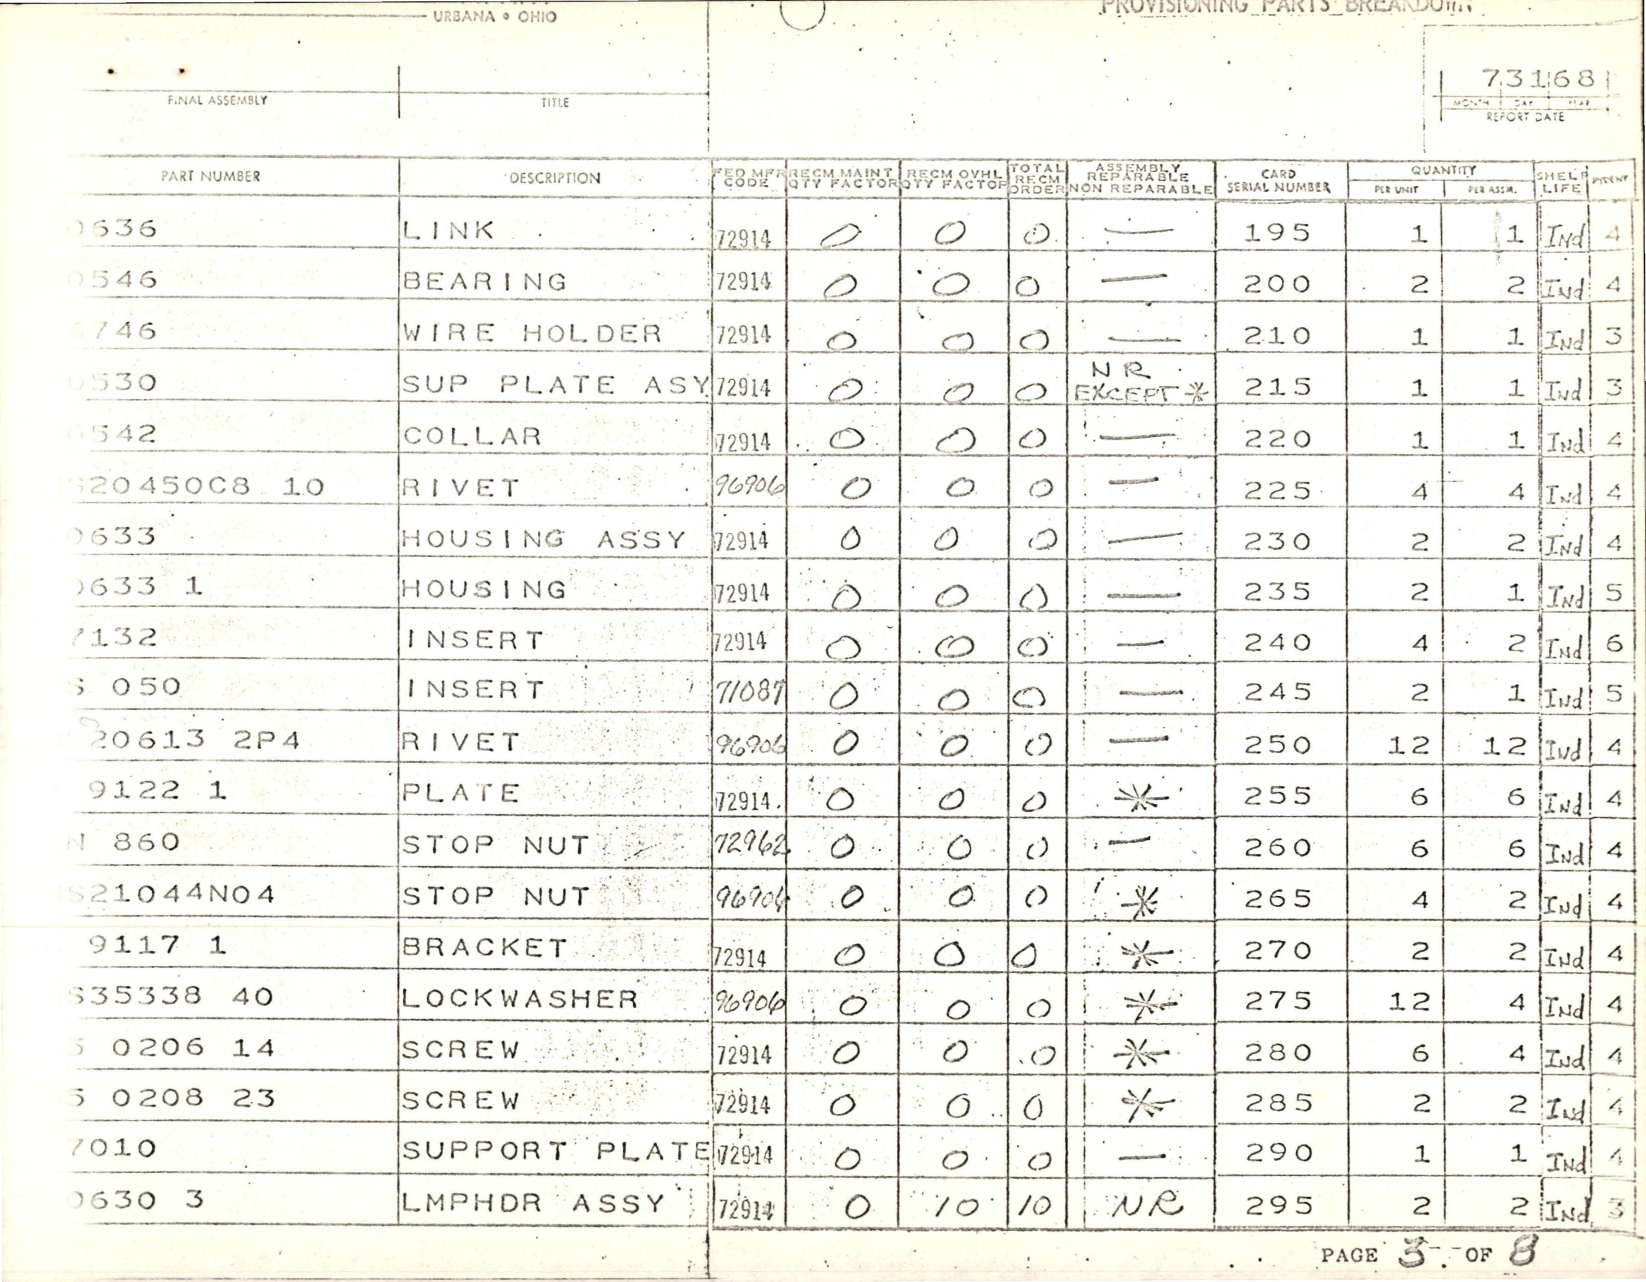 URBANA • OHIO
PROVISIONING PARTS BREAKDOWN
73168
MONTH DAY YEAR
REPORT DATE
FINAL ASSEMBLY TITLE
PART NUMBER DESCRIPTION FED MFR CODE RECM MAINT QTY FACTOR RECM OVHL QTY FACTOR TOTAL RECM ORDER ASSEMBLY REPARABLE NON REPARABLE CARD SERIAL NUMBER QUANTITY PER UNIT PER ASSM. SHELF LIFE
0636 LINK 72914 0 0 0 — 195 1 1 Ind 4
0546 BEARING 72914 0 0 0 — 200 2 2 Ind 4
6746 WIRE HOLDER 72914 0 0 0 — 210 1 1 Ind 3
0530 SUP PLATE ASY 72914 0 0 0 NR EXCEPT * 215 1 1 Ind 3
0542 COLLAR 72914 0 0 0 — 220 1 1 Ind 4
S20450C8 10 RIVET 96906 0 0 0 — 225 4 4 Ind 4
0633 HOUSING ASSY 72914 0 0 0 — 230 2 2 Ind 4
0633 1 HOUSING 72914 0 0 0 — 235 2 1 Ind 5
7132 INSERT 72914 0 0 0 — 240 4 2 Ind 6
S 050 INSERT 71087 0 0 0 — 245 2 1 Ind 5
S20613 2P4 RIVET 96906 0 0 0 — 250 12 12 Ind 4
9122 1 PLATE 72914 0 0 0 * 255 6 6 Ind 4
N 860 STOP NUT 72962 0 0 0 — 260 6 6 Ind 4
S21044N04 STOP NUT 96906 0 0 0 * 265 4 2 Ind 4
9117 1 BRACKET 72914 0 0 0 * 270 2 2 Ind 4
S35338 40 LOCKWASHER 96906 0 0 0 * 275 12 4 Ind 4
5 0206 14 SCREW 72914 0 0 0 * 280 6 4 Ind 4
5 0208 23 SCREW 72914 0 0 0 * 285 2 2 Ind 4
7010 SUPPORT PLATE 72914 0 0 0 — 290 1 1 Ind 4
0630 3 LMPHDR ASSY 72914 0 10 10 NR 295 2 2 Ind 3
PAGE 3 OF 8